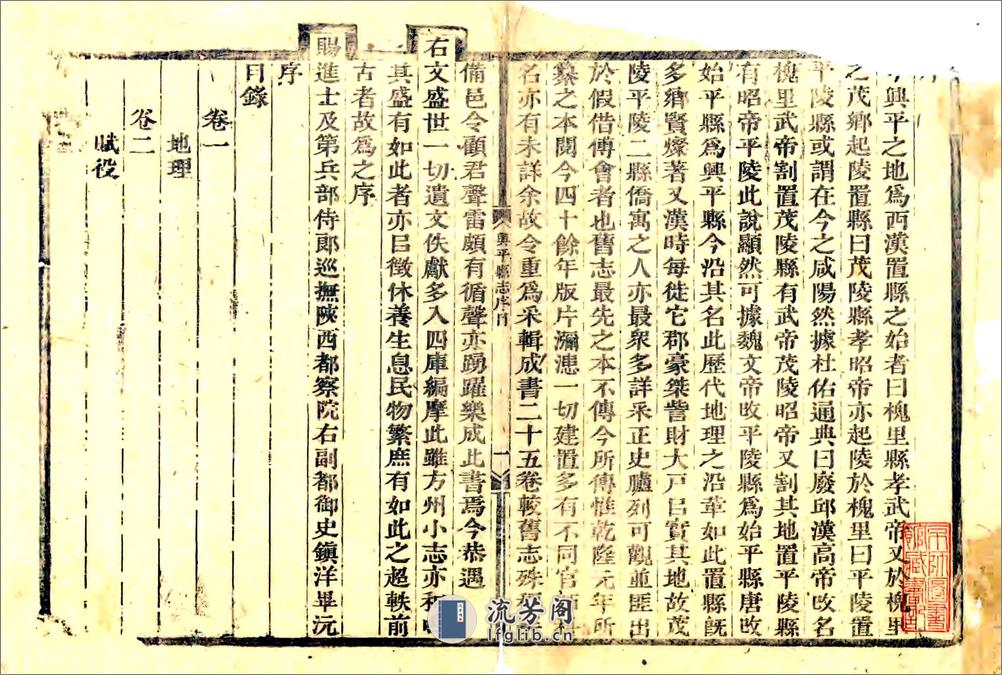 興平之地爲西漢置縣之始者曰槐里縣孝武帝又於槐里
之茂鄉起陵置縣曰茂陵縣孝昭帝亦起陵於槐里曰平陵置
平陵縣或謂在今之咸陽然據杜佑通典曰廢邱漢高帝改名
槐里武帝割置茂陵縣有武帝茂陵昭帝又割其地置平陵縣
有昭帝平陵此說顯然可據魏文帝改平陵縣爲始平縣唐改
始平縣爲興平縣今沿其名此歷代地理之沿革如此置縣旣
多鄉賢燦著又漢時每徙它郡豪桀訾財大戸㠯實其地故茂
陵平陵二縣僑寓之人亦最衆多詳釆正史臚列可觀並匪出
於假借傅會者也舊志最先之本不傳今所傳惟乾隆元年所
纂之本閱今四十餘年版片瀰漶一切建置多有不同官師
名亦有未詳余故令重爲釆輯成書二十五卷較舊志殊
興平縣志序目
一
備邑令顧君聲雷頗有循聲亦踴躍樂成此書焉今恭遇
右文盛世一切遺文佚獻多入四庫編摩此雖方州小志亦和
其盛有如此者亦㠯徵休養生息民物繁庶有如此之超軼前
古者故爲之序
賜進士及第兵部侍郞巡撫陝西都察院右副都御史鎭洋畢沅
序
目錄
卷一
地理
卷二
賦役
流芳阁
lfglib.cn